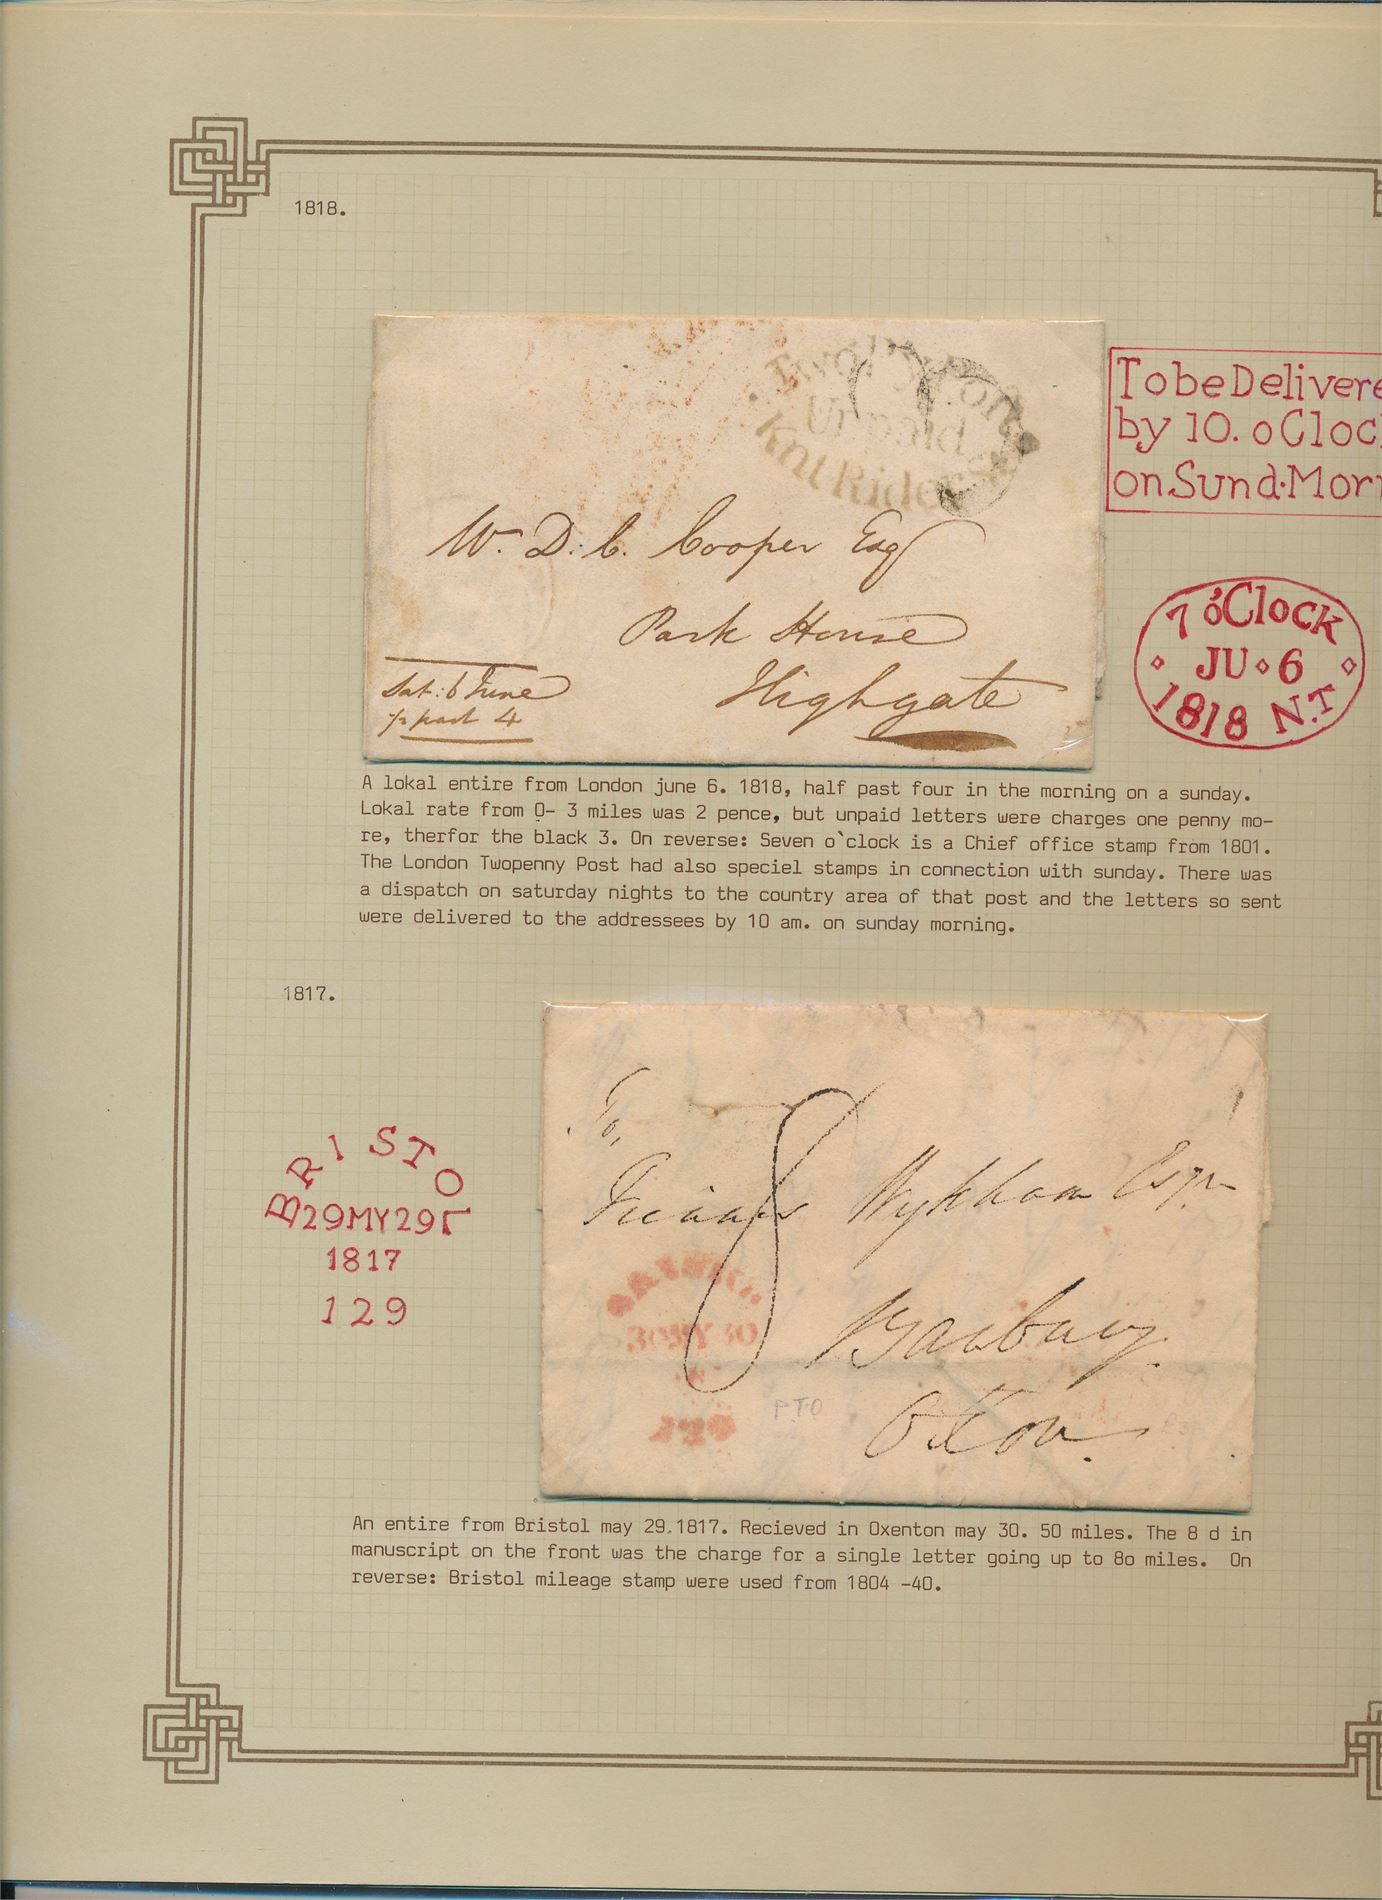 1818.
Two Py Post
Unpaid
Knt Rider St
To be Delivere
by 10. o Cloc
on Sund. Mor
W. D. C. Cooper Esq
Park House
Highgate
Sat: 6 June
½ past 4
7 o'Clock
JU 6
1818 N.T
A lokal entire from London june 6. 1818, half past four in the morning on a sunday.
Lokal rate from 0- 3 miles was 2 pence, but unpaid letters were charges one penny mo-
re, therfor the black 3. On reverse: Seven o`clock is a Chief office stamp from 1801.
The London Twopenny Post had also speciel stamps in connection with sunday. There was
a dispatch on saturday nights to the country area of that post and the letters so sent
were delivered to the addressees by 10 am. on sunday morning.
1817.
BRISTOL
29MY29
1817
129
To,
8
Wykham Esqr
30MY30
Banbury.
Oxon.
PTO
An entire from Bristol may 29.1817. Recieved in Oxenton may 30. 50 miles. The 8 d in
manuscript on the front was the charge for a single letter going up to 8o miles. On
reverse: Bristol mileage stamp were used from 1804 -40.